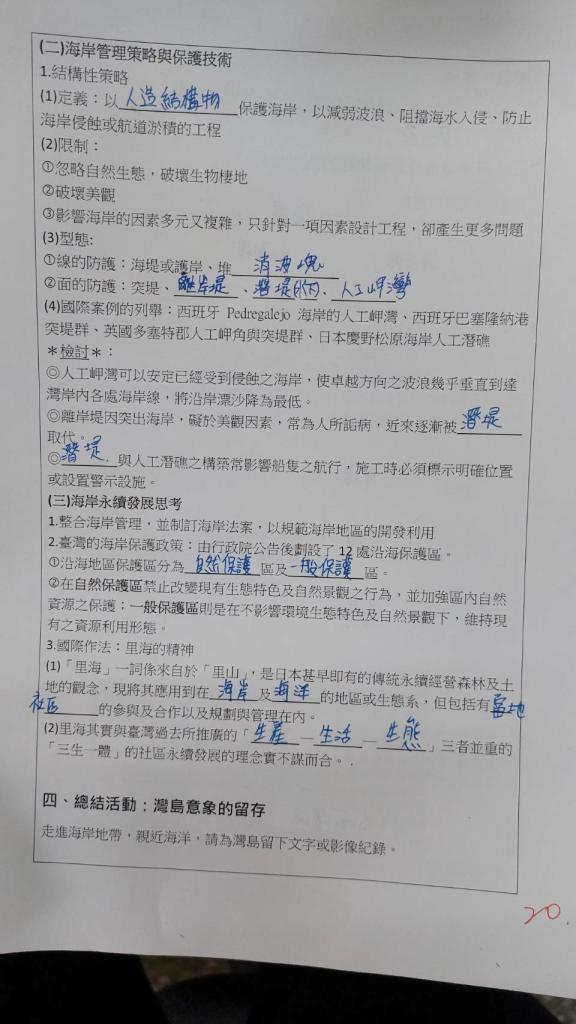 (二)海岸管理策略與保護技術
1.結構性策略
(1)定義：以人造結構物保護海岸，以減弱波浪、阻擋海水入侵、防止
海岸侵蝕或航道淤積的工程
(2)限制：
①忽略自然生態，破壞生物棲地
②破壞美觀
③影響海岸的因素多元又複雜，只針對一項因素設計工程，卻產生更多問題
(3)型態:
①線的防護：海堤或護岸、堆消波塊
②面的防護：突堤、離岸堤、潛堤、人工岬灣
(4)國際案例的列舉：西班牙 Pedregalejo 海岸的人工岬灣、西班牙巴塞隆納港
突堤群、英國多塞特郡人工岬角與突堤群、日本慶野松原海岸人工潛礁
＊檢討＊：
◎人工岬灣可以安定已經受到侵蝕之海岸，使卓越方向之波浪幾乎垂直到達
灣岸內各處海岸線，將沿岸漂沙降為最低。
◎離岸堤因突出海岸，礙於美觀因素，常為人所詬病，近來逐漸被潛堤
取代。
◎潛堤與人工潛礁之構築常影響船隻之航行，施工時必須標示明確位置
或設置警示設施。
(三)海岸永續發展思考
1.整合海岸管理，並制訂海岸法案，以規範海岸地區的開發利用
2.臺灣的海岸保護政策：由行政院公告後劃設了 12 處沿海保護區。
①沿海地區保護區分為自然保護區及一般保護區。
②在自然保護區禁止改變現有生態特色及自然景觀之行為，並加強區內自然
資源之保護；一般保護區則是在不影響環境生態特色及自然景觀下，維持現
有之資源利用形態。
3.國際作法：里海的精神
(1)「里海」一詞係來自於「里山」，是日本甚早即有的傳統永續經營森林及土
地的觀念，現將其應用到在海岸及海洋的地區或生態系，但包括有當地
社區的參與及合作以及規劃與管理在內。
(2)里海其實與臺灣過去所推廣的「生產—生活—生態」三者並重的
「三生一體」的社區永續發展的理念實不謀而合。.
四、總結活動：灣島意象的留存
走進海岸地帶，親近海洋，請為灣島留下文字或影像紀錄。
20.